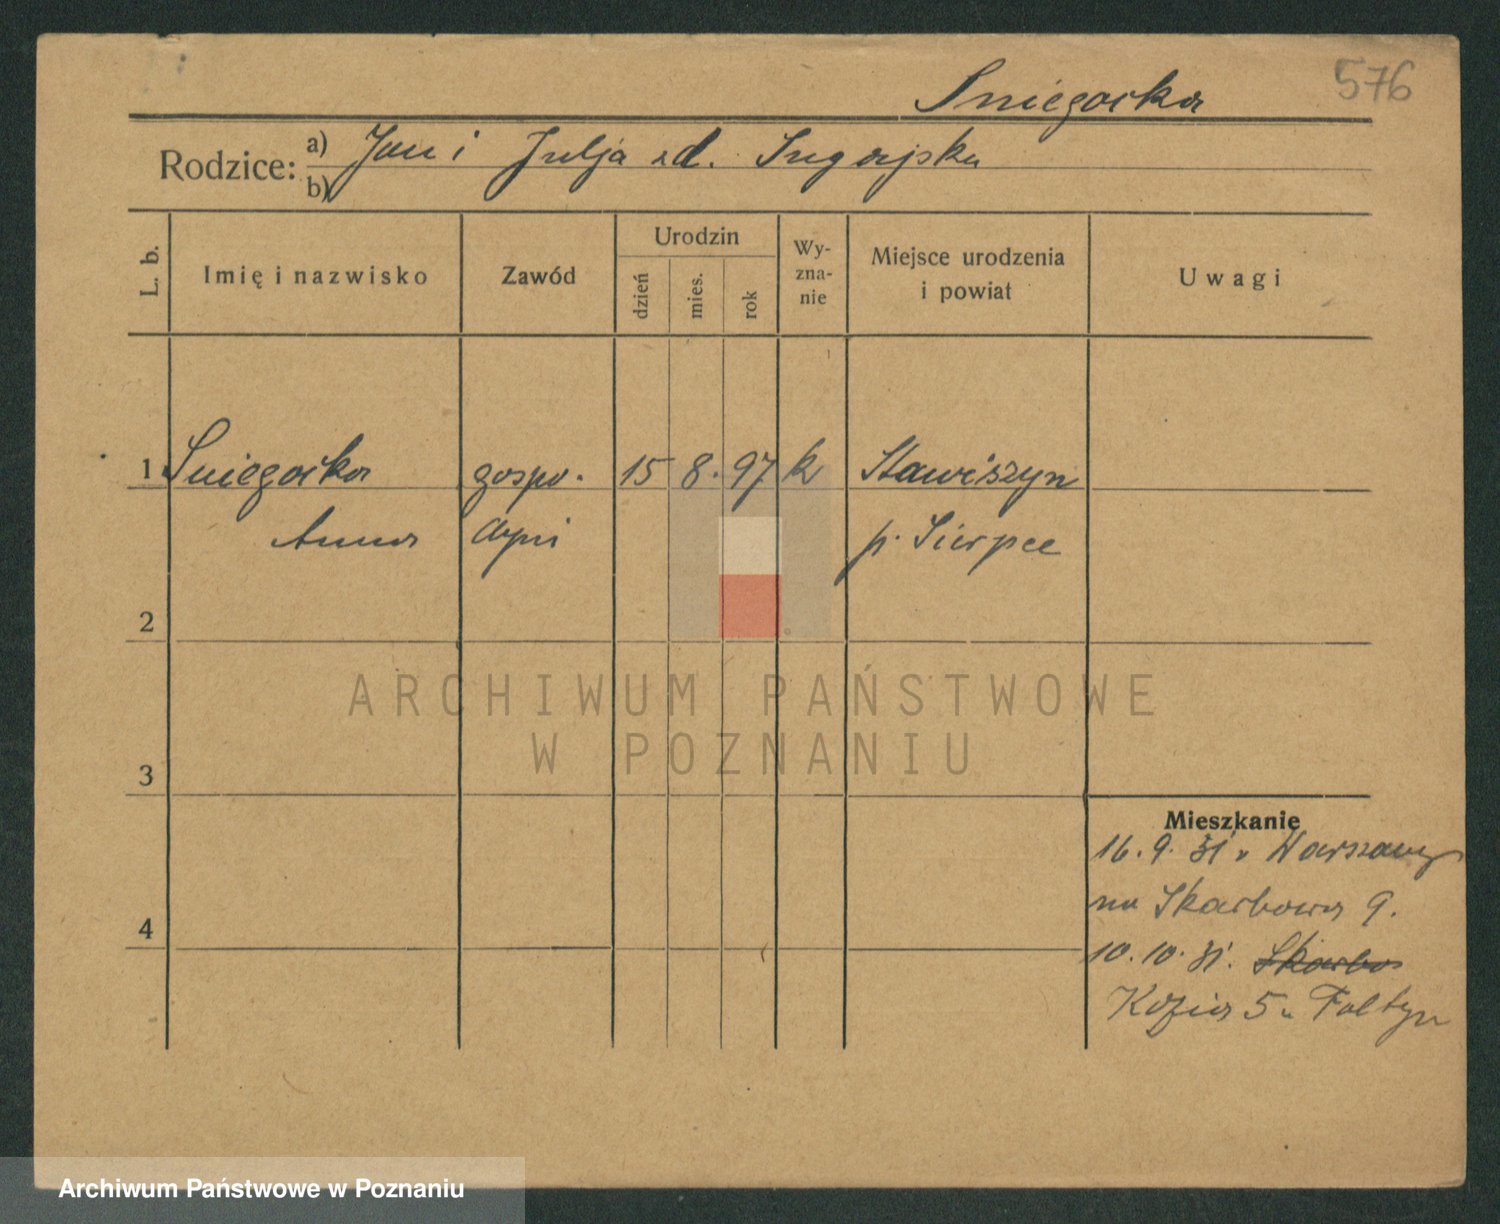 576
Sniegocka
Rodzice: a) Jan i Julja zd.
b)
L. b.
Imię i nazwisko
Zawód
Urodzin
dzień
mies.
rok
Wy-
zna-
nie
Miejsce urodzenia
i powiat
Uwagi
1 Sniegocka gospo- 15 8. 97 k Stawiszyn
Anna dyni p. Sierpce
2
ARCHIWUM PAŃSTWOWE
W POZNANIU
3
Mieszkanie
16. 9. 31 z Warszawy
na Skarbowa 9.
4
10. 10. 31. Skarbo
Kozia 5 u Foltyn
Archiwum Państwowe w Poznaniu